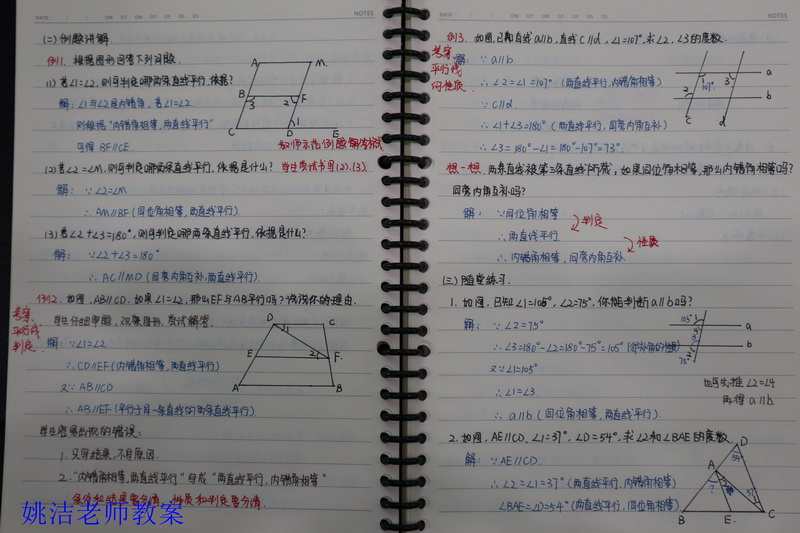 DATE
NOTES
(二) 例题讲解.
例1. 根据图形回答下列问题.
(1) 若∠1=∠2, 则可判定哪两条直线平行, 依据?
解: ∠1与∠2是内错角, 若∠1=∠2
则根据"内错角相等, 两直线平行"
可得 BF//CE.
A
M.
B
3
2
F
1
C
D
E
教师示范例题解答格式
(2) 若∠2=∠M, 则可判定哪两条直线平行, 依据是什么? 学生尝试书写(2).(3)
解: ∵∠2=∠M
∴ AM//BF (同位角相等, 两直线平行).
(3) 若∠2+∠3=180°, 则可判定哪两条直线平行, 依据是什么?
解: ∵∠2+∠3=180°
∴ AC//MD (同旁内角互补, 两直线平行).
例2. 如图, AB//CD. 如果∠1=∠2, 那么EF与AB平行吗? 说说你的理由.
考察
平行线
判定.
学生仔细审题, 观察图形, 尝试解答.
解: ∵∠1=∠2
∴CD//EF (内错角相等, 两直线平行)
又∵ AB//CD
∴ AB//EF (平行于同一条直线的两条直线平行).
D
C
1
E
2
F.
A
B
学生容易出现的错误:
1. 只写结果, 不写原因.
2. "内错角相等, 两直线平行"写成"两直线平行, 内错角相等"
条件和结果要分清, 性质和判定要分清.
姚洁老师教案
NOTES
例3. 如图, 已知直线a//b, 直线c//d, ∠1=107°, 求∠2, ∠3的度数.
考察
平行线
的性质.
解: ∵ a//b
∴ ∠2=∠1=107° (两直线平行, 内错角相等)
∵ c//d
∴ ∠1+∠3=180° (两直线平行, 同旁内角互补)
∴ ∠3=180°-∠1=180°-107°=73°.
1
107°
3
a
2
b
c
d
想一想. 两条直线被第三条直线所截, 如果同位角相等, 那么内错角相等吗?
同旁内角互补吗?
解: ∵同位角相等
判定
∴两直线平行
性质
∴内错角相等, 同旁内角互补.
(三) 随堂练习.
1. 如图, 已知∠1=105°, ∠2=75°, 你能判断a//b吗?
解: ∵ ∠2=75°
∴ ∠3=180°-∠2=180°-75°=105° (邻补角的性质)
又∵∠1=105°
∴ ∠1=∠3
∴ a//b (同位角相等, 两直线平行).
105°
1
a
b
75°
2
也可先推∠2=∠4
再得a//b
2. 如图, AE//CD, ∠1=37°, ∠D=54°, 求∠2和∠BAE的度数.
解: ∵ AE//CD
∴ ∠2=∠1=37° (两直线平行, 内错角相等)
∠BAE=∠D=54° (两直线平行, 同位角相等)
D
54°
A
?
37°
B
E.
C